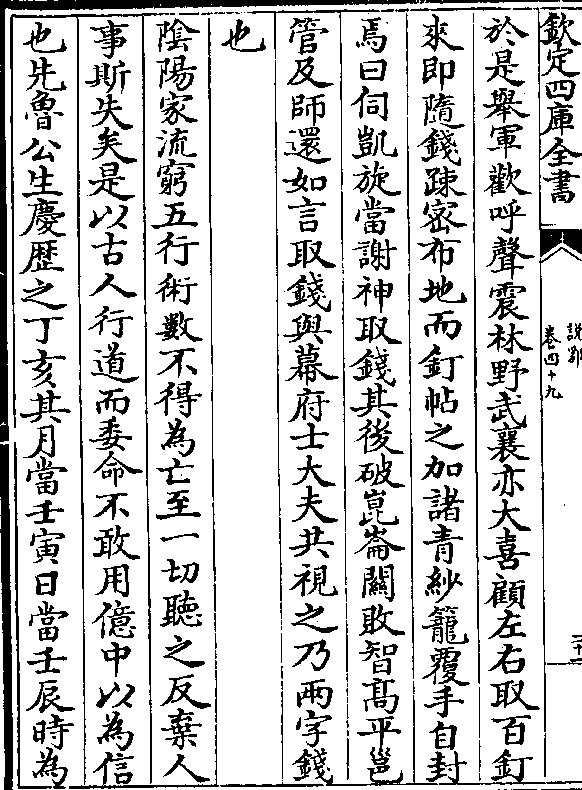 欽定四庫全書
說郛
卷四十九
二十一
於是舉軍歡呼聲震林野武襄亦大喜顧左右取百釘
來即隨錢踈密布地而釘帖之加諸青紗籠覆手自封
焉曰伺凱旋當謝神取錢其後破崑崙關敗智髙平邕
管及師還如言取錢與幕府士大夫共視之乃兩字錢
也
隂陽家流窮五行術數不得為亡至一切聽之反棄人
事斯失矣是以古人行道而委命不敢用億中以為信
也先魯公生慶歴之丁亥其月當壬寅日當壬辰時為